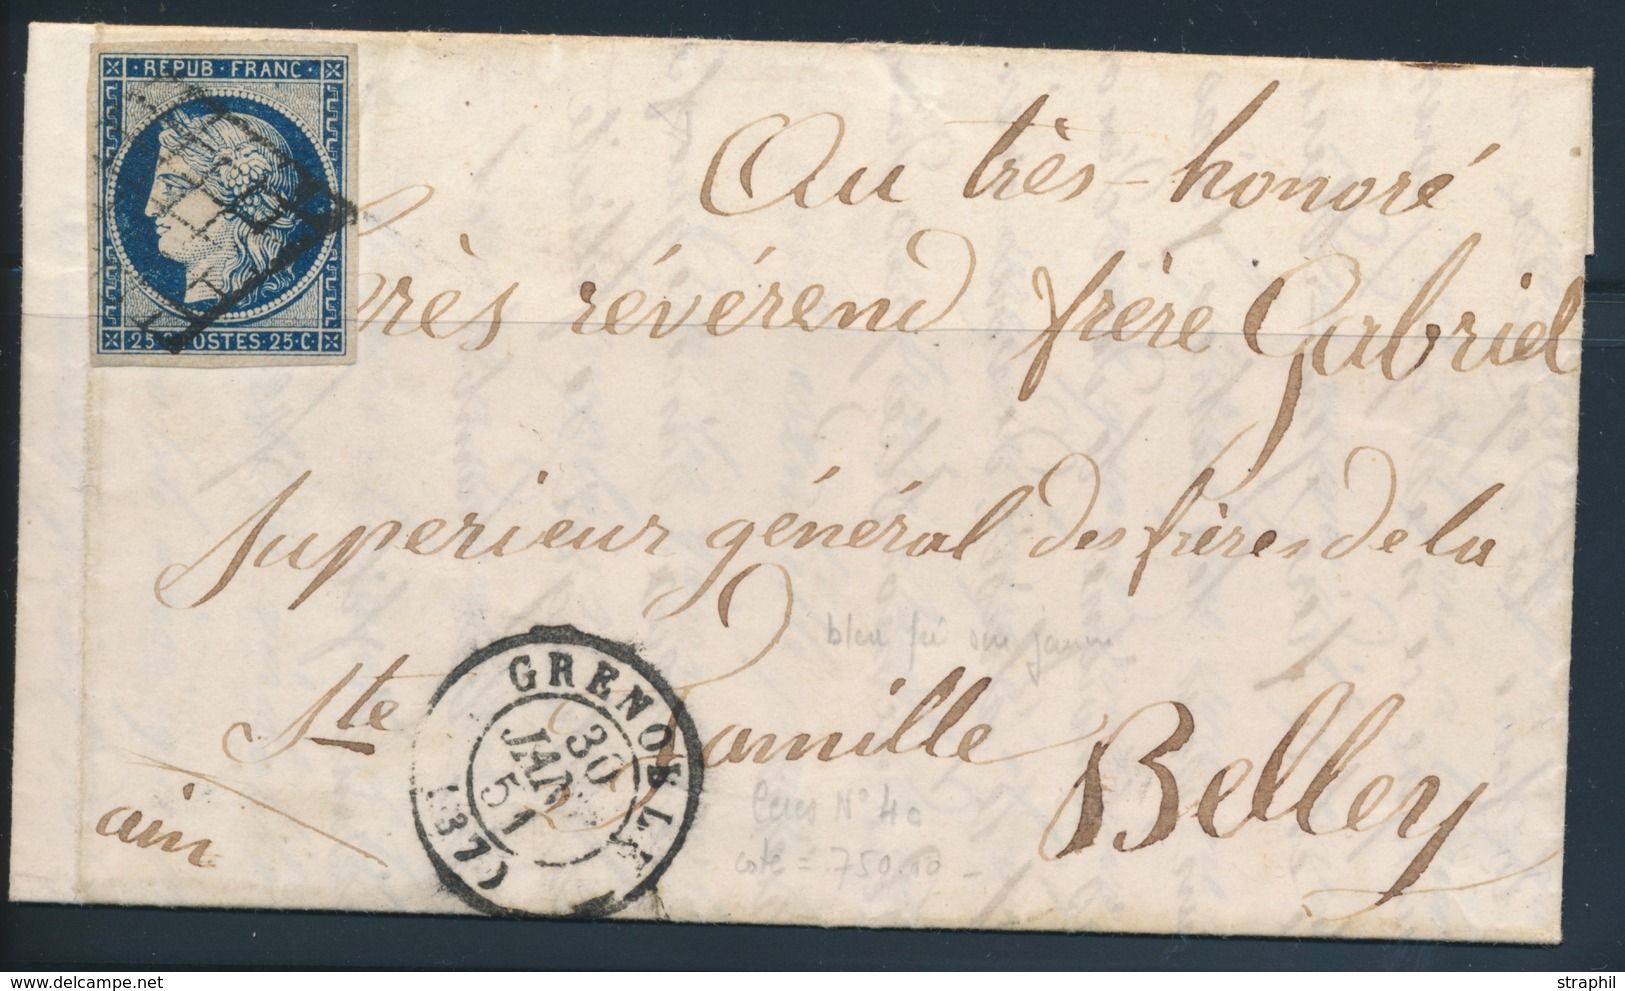 REPUB·FRANC·
25 POSTES·25·C·
Au très-honoré
très révérend frère Gabriel
supérieur général des frères de la
Ste Famille
Belley
ain
GRENOBLE
30
JANV
51
(37)
bleu sur jaune
N° 4a
cote = 750.00 -
straphil
www.delcampe.net